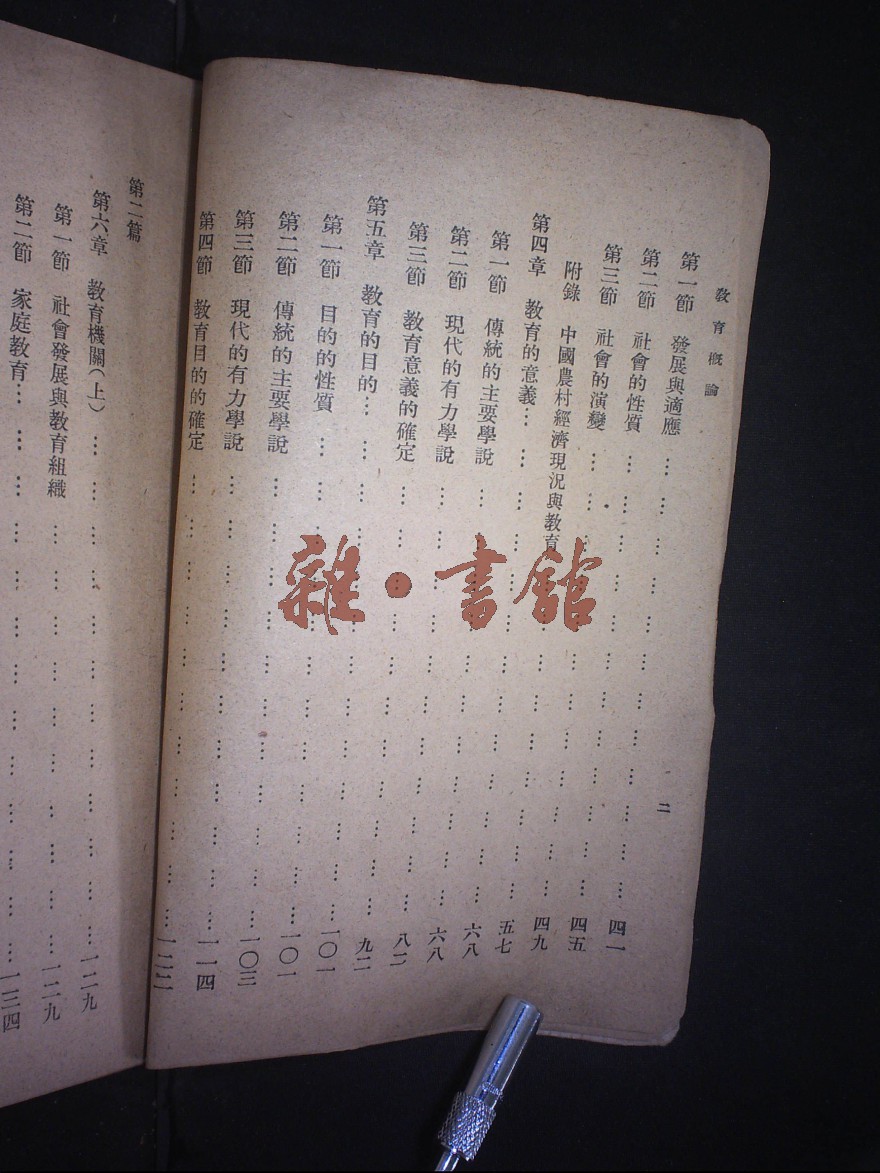 教育概論 二
第一節 發展與適應 … … … … … … … … 四一
第二節 社會的性質 … … … … … … … … 四五
第三節 社會的演變 … … … … … … … … 四九
附錄 中國農村經濟現況與教育 … … … … … 五七
第四章 教育的意義 … … … … … … … … 六八
第一節 傳統的主要學說 … … … … … … … 六八
第二節 現代的有力學說 … … … … … … … 八二
第三節 教育意義的確定 … … … … … … … 九二
第五章 教育的目的 … … … … … … … … 一〇一
第一節 目的的性質 … … … … … … … … 一〇一
第二節 傳統的主要學說 … … … … … … … 一〇三
第三節 現代的有力學說 … … … … … … … 一一四
第四節 教育目的的確定 … … … … … … … 一二二
第二篇
第六章 教育機關(上) … … … … … … … … 一二九
第一節 社會發展與教育組織 … … … … … … 一二九
第二節 家庭教育 … … … … … … … … 一三四
雜·書館